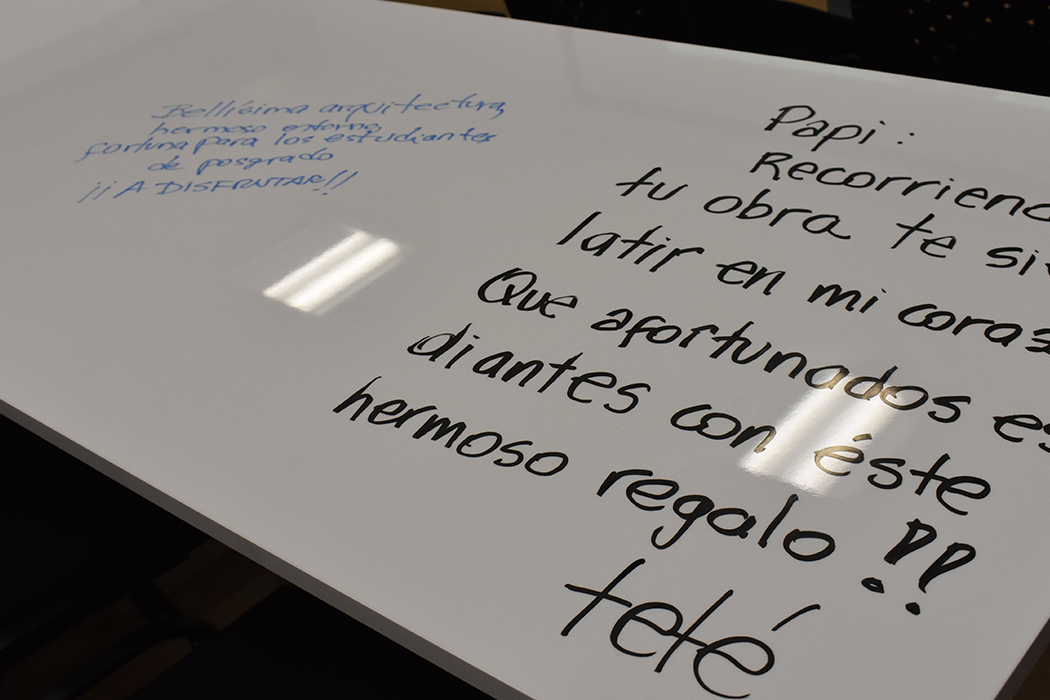 Bellísima arquitectura,
hermoso entorno,
fortuna para los estudiantes
de posgrado
¡¡A DISFRUTAR!!
Papi:
Recorriend
tu obra te si
latir en mi coraz
Que afortunados es
diantes con éste
hermoso regalo!!
teté